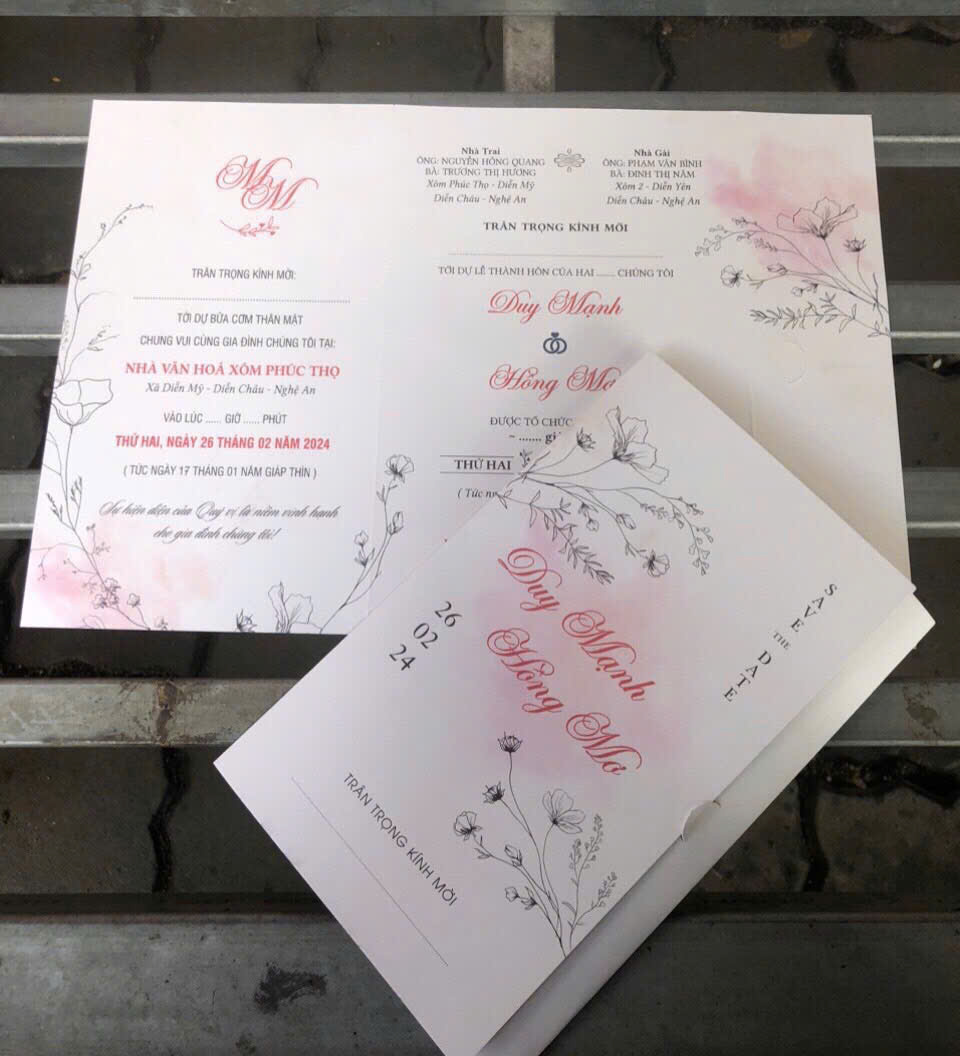 MM
TRÂN TRỌNG KÍNH MỜI:
TỚI DỰ BỮA CƠM THÂN MẬT
CHUNG VUI CÙNG GIA ĐÌNH CHÚNG TÔI TẠI:
NHÀ VĂN HOÁ XÓM PHÚC THỌ
Xã Diễn Mỹ - Diễn Châu - Nghệ An
VÀO LÚC ...... GIỜ ...... PHÚT
THỨ HAI, NGÀY 26 THÁNG 02 NĂM 2024
( TỨC NGÀY 17 THÁNG 01 NĂM GIÁP THÌN )
Sự hiện diện của Quý vị là niềm vinh hạnh
cho gia đình chúng tôi!
Nhà Trai
ÔNG: NGUYỄN HỒNG QUANG
BÀ: TRƯƠNG THỊ HƯỜNG
Xóm Phúc Thọ - Diễn Mỹ
Diễn Châu - Nghệ An
Nhà Gái
ÔNG: PHẠM VĂN BÌNH
BÀ: ĐINH THỊ NĂM
Xóm 2 - Diễn Yên
Diễn Châu - Nghệ An
TRÂN TRỌNG KÍNH MỜI
TỚI DỰ LỄ THÀNH HÔN CỦA HAI ...... CHÚNG TÔI
Duy Mạnh
Hồng Mơ
ĐƯỢC TỔ CHỨC
~ ....... gi
THỨ HAI
( Tức n
Duy Mạnh
Hồng Mơ
26
02
24
SAVE THE DATE
TRÂN TRỌNG KÍNH MỜI